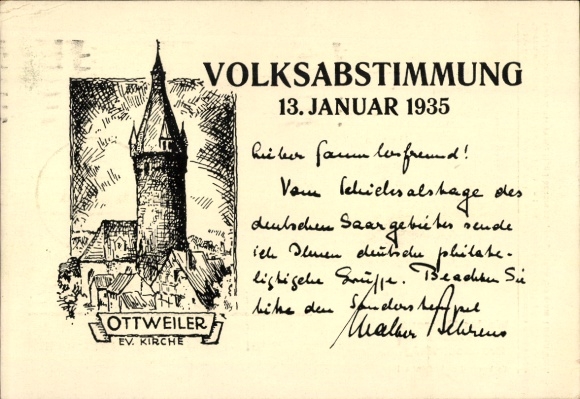 VOLKSABSTIMMUNG
13. JANUAR 1935
Lieber Sammlerfreund!
Vom Schicksalstage des
deutschen Saargebietes sende
ich Ihnen deutsche philate-
listische Grüsse. Beachten Sie
bitte den Sonderstempel
Walter Behrens
OTTWEILER
EV. KIRCHE